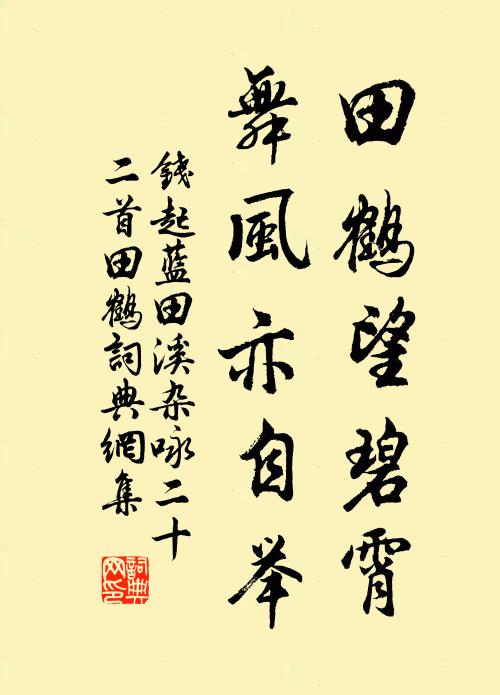 田鶴望碧霄
舞風亦自举
錢起藍田溪杂咏二十
二首田鶴詞典網集
詞典
网印